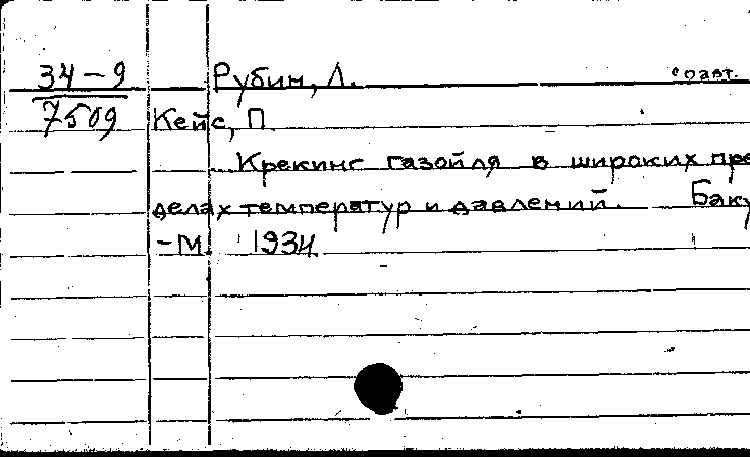 34-9 Рубин, Л. соавт.
7509 Кейс, П
Крекинг газойля в широких пре
делах температур и давлений. Баку
-М. 1934.